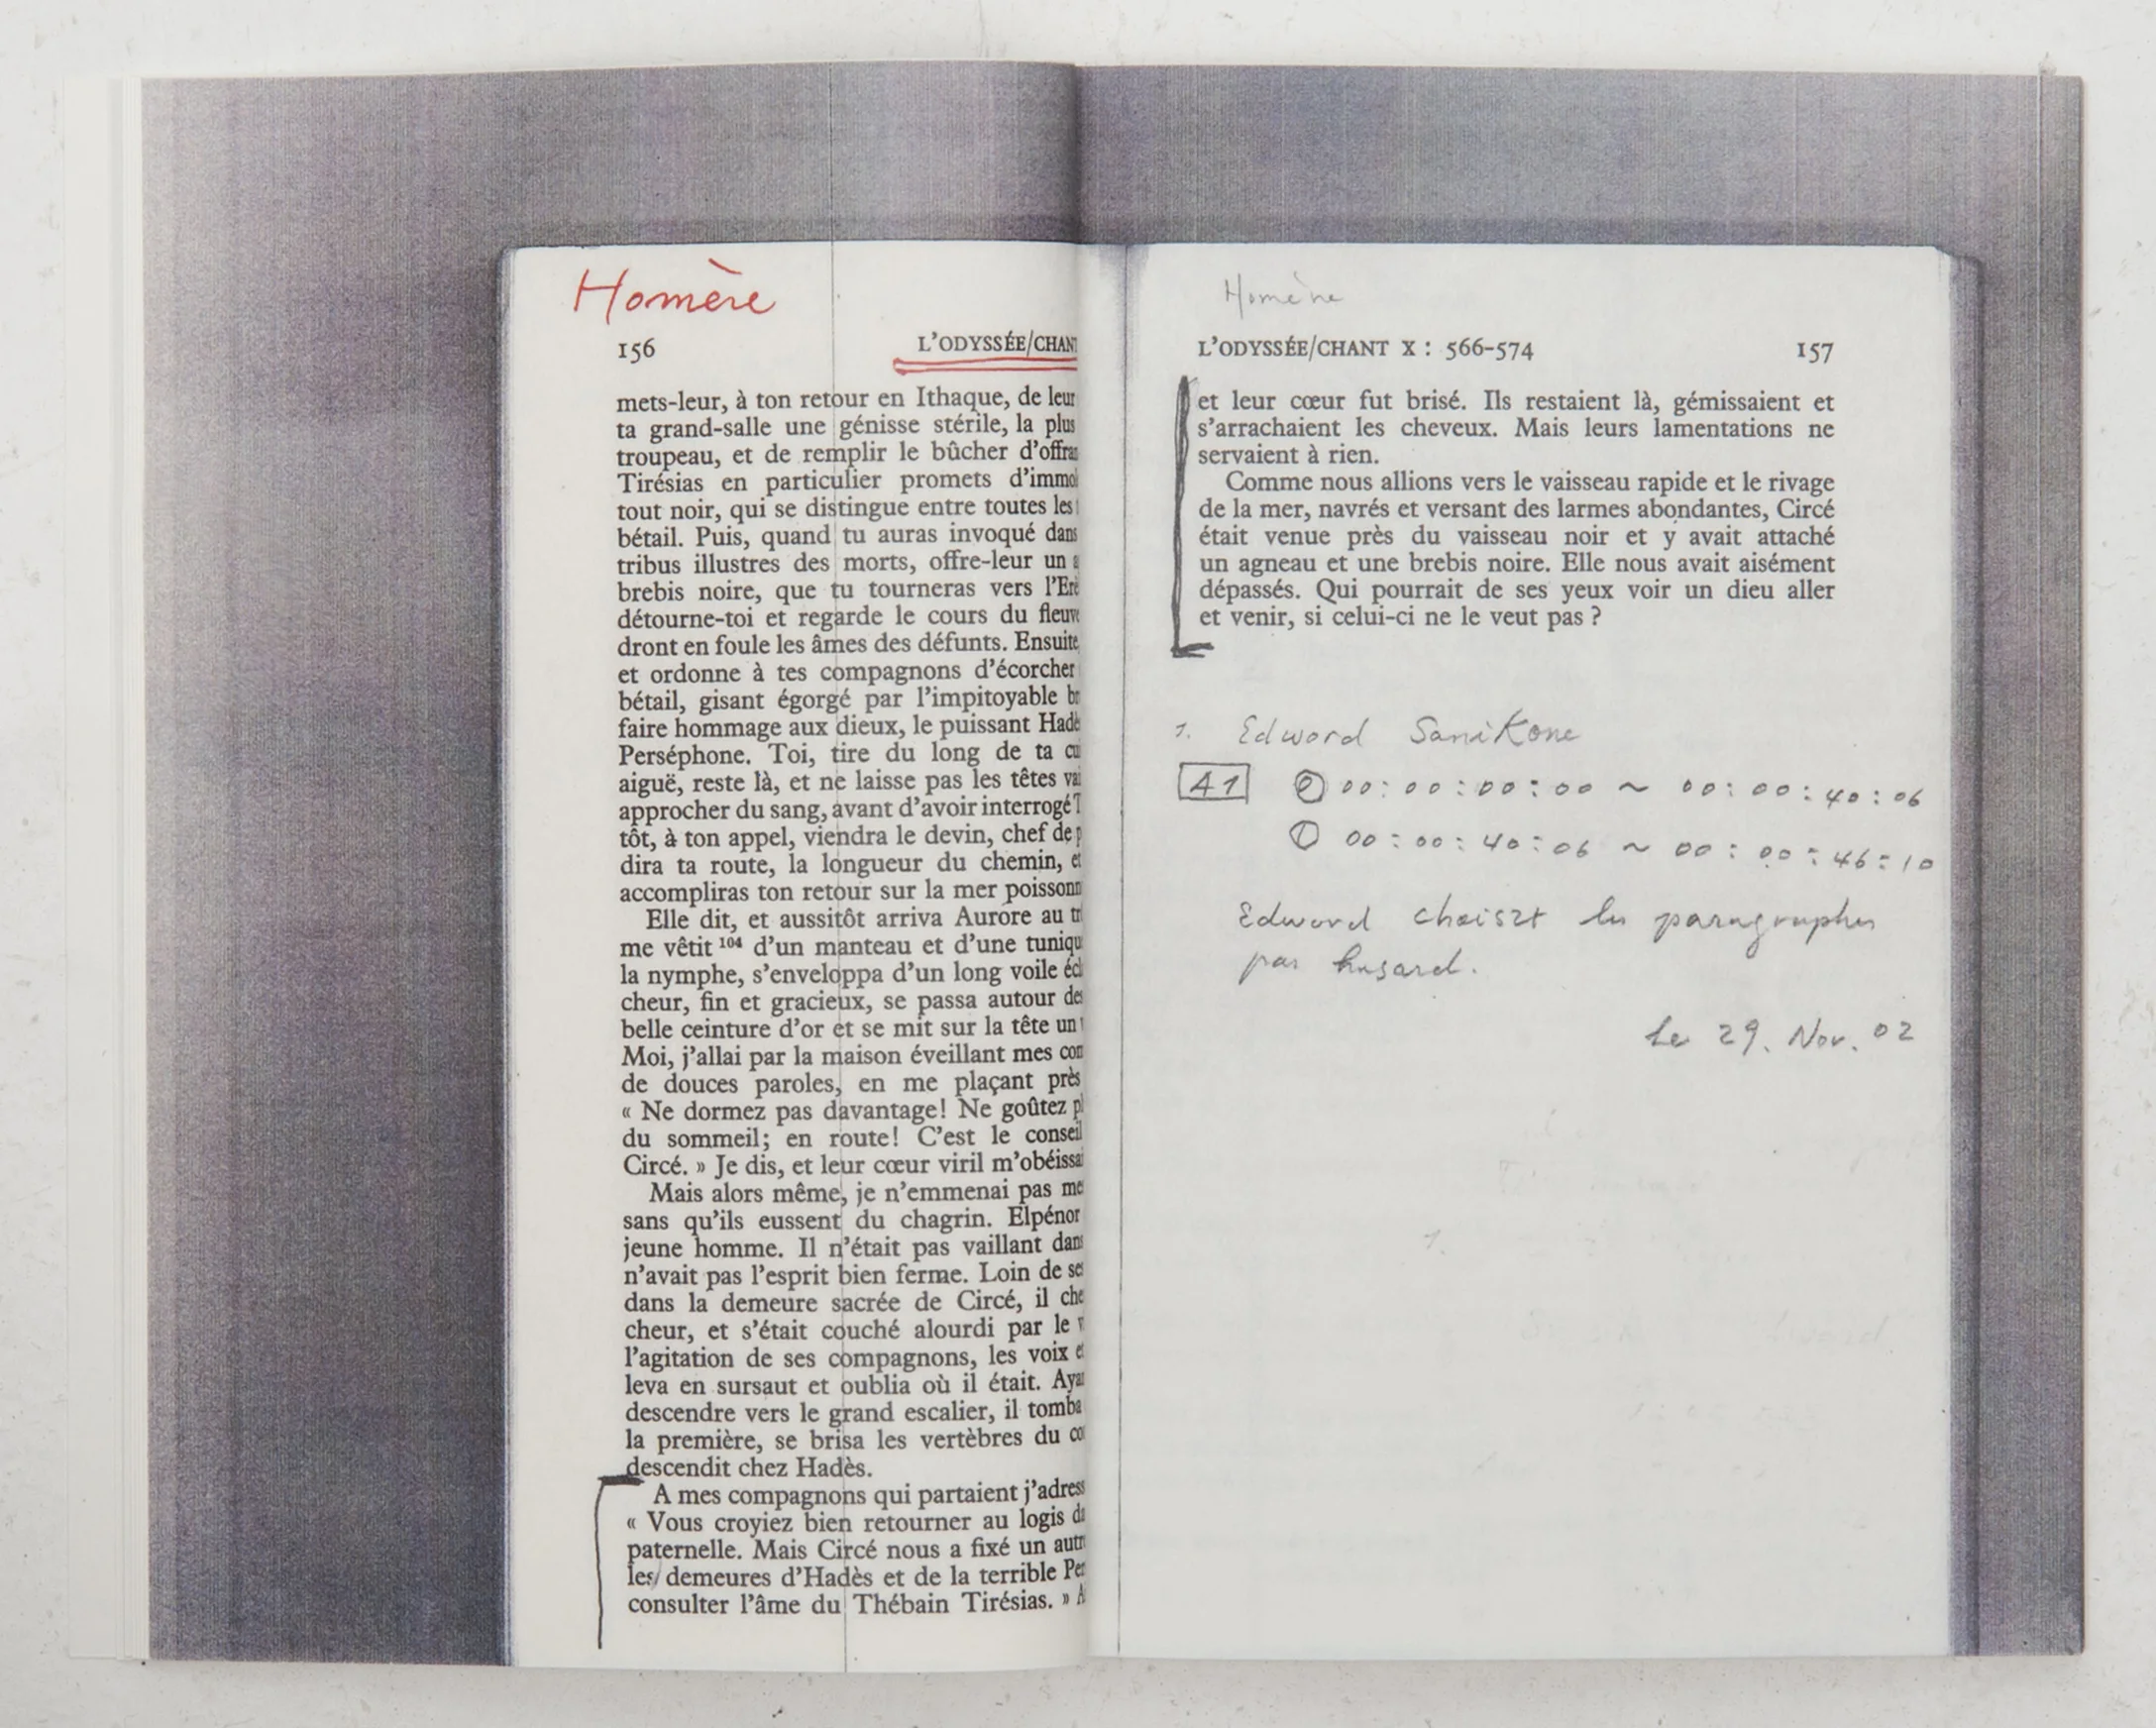 Homère
156 L'ODYSSÉE/CHANT
mets-leur, à ton retour en Ithaque, de leur
ta grand-salle une génisse stérile, la plus
troupeau, et de remplir le bûcher d'offran
Tirésias en particulier promets d'immol
tout noir, qui se distingue entre toutes les
bétail. Puis, quand tu auras invoqué dans
tribus illustres des morts, offre-leur un a
brebis noire, que tu tourneras vers l'Erè
détourne-toi et regarde le cours du fleuve
dront en foule les âmes des défunts. Ensuite,
et ordonne à tes compagnons d'écorcher
bétail, gisant égorgé par l'impitoyable br
faire hommage aux dieux, le puissant Hadè
Perséphone. Toi, tire du long de ta cui
aiguë, reste là, et ne laisse pas les têtes vai
approcher du sang, avant d'avoir interrogé T
tôt, à ton appel, viendra le devin, chef de p
dira ta route, la longueur du chemin, et
accompliras ton retour sur la mer poissonn
Elle dit, et aussitôt arriva Aurore au tr
me vêtit 104 d'un manteau et d'une tuniqu
la nymphe, s'enveloppa d'un long voile écl
cheur, fin et gracieux, se passa autour des
belle ceinture d'or et se mit sur la tête un v
Moi, j'allai par la maison éveillant mes com
de douces paroles, en me plaçant près
« Ne dormez pas davantage! Ne goûtez pl
du sommeil; en route! C'est le conseil
Circé. » Je dis, et leur cœur viril m'obéissai
Mais alors même, je n'emmenai pas me
sans qu'ils eussent du chagrin. Elpénor
jeune homme. Il n'était pas vaillant dans
n'avait pas l'esprit bien ferme. Loin de ses
dans la demeure sacrée de Circé, il che
cheur, et s'était couché alourdi par le v
l'agitation de ses compagnons, les voix et
leva en sursaut et oublia où il était. Ayan
descendre vers le grand escalier, il tomba
la première, se brisa les vertèbres du co
descendit chez Hadès.
A mes compagnons qui partaient j'adress
« Vous croyiez bien retourner au logis da
paternelle. Mais Circé nous a fixé un autr
les demeures d'Hadès et de la terrible Per
consulter l'âme du Thébain Tirésias. » A
Homère
L'ODYSSÉE/CHANT X : 566-574 157
et leur cœur fut brisé. Ils restaient là, gémissaient et
s'arrachaient les cheveux. Mais leurs lamentations ne
servaient à rien.
Comme nous allions vers le vaisseau rapide et le rivage
de la mer, navrés et versant des larmes abondantes, Circé
était venue près du vaisseau noir et y avait attaché
un agneau et une brebis noire. Elle nous avait aisément
dépassés. Qui pourrait de ses yeux voir un dieu aller
et venir, si celui-ci ne le veut pas ?
1. Edward SaniKone
A1 00:00:00:00 ~ 00:00:40:06
① 00:00:40:06 ~ 00:00:46:10
Edward choisit les paragraphes
par hasard.
Le 29. Nov. 02